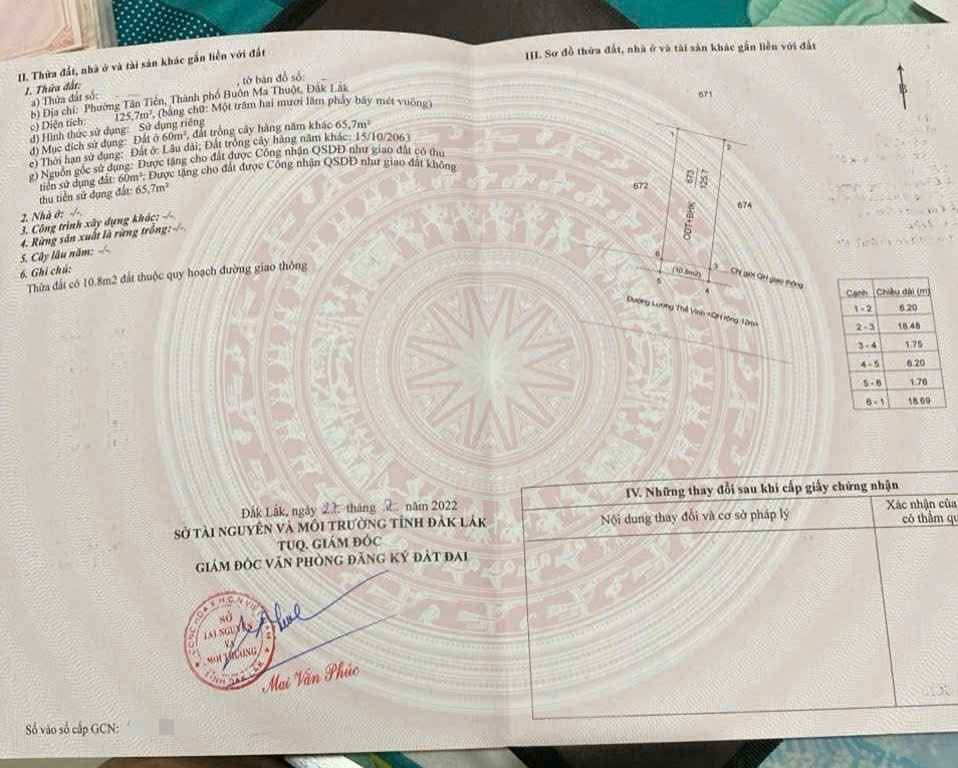 II. Thửa đất, nhà ở và tài sản khác gắn liền với đất
1. Thửa đất:
a) Thửa đất số: , tờ bản đồ số:
b) Địa chỉ: Phường Tân Tiến, Thành phố Buôn Ma Thuột, Đắk Lắk
c) Diện tích: 125,7m², (bằng chữ: Một trăm hai mươi lăm phẩy bảy mét vuông)
d) Hình thức sử dụng: Sử dụng riêng
đ) Mục đích sử dụng: Đất ở 60m², đất trồng cây hàng năm khác 65,7m²
e) Thời hạn sử dụng: Đất ở: Lâu dài; Đất trồng cây hàng năm khác: 15/10/2063
g) Nguồn gốc sử dụng: Được tặng cho đất được Công nhận QSDĐ như giao đất có thu
tiền sử dụng đất: 60m²; Được tặng cho đất được Công nhận QSDĐ như giao đất không
thu tiền sử dụng đất: 65,7m²
2. Nhà ở: -/-
3. Công trình xây dựng khác: -/-
4. Rừng sản xuất là rừng trồng: -/-
5. Cây lâu năm: -/-
6. Ghi chú:
Thửa đất có 10.8m2 đất thuộc quy hoạch đường giao thông
Đắk Lắk, ngày 22 tháng 2 năm 2022
SỞ TÀI NGUYÊN VÀ MÔI TRƯỜNG TỈNH ĐẮK LẮK
TUQ. GIÁM ĐỐC
GIÁM ĐỐC VĂN PHÒNG ĐĂNG KÝ ĐẤT ĐAI
SỞ
TÀI NGUYÊN
VÀ
MÔI TRƯỜNG
TỈNH ĐẮK LẮK
Mai Văn Phúc
Số vào sổ cấp GCN:
III. Sơ đồ thửa đất, nhà ở và tài sản khác gắn liền với đất
671
B
1
2
672
ODT+BHK
673
125.7
674
6
3
Chỉ giới QH giao thông
(10.8m2)
5
4
Đường Lương Thế Vinh <QH rộng 12m>
Cạnh Chiều dài (m)
1 - 2 6.20
2 - 3 18.48
3 - 4 1.75
4 - 5 6.20
5 - 6 1.76
6 - 1 18.69
IV. Những thay đổi sau khi cấp giấy chứng nhận
Nội dung thay đổi và cơ sở pháp lý
Xác nhận của
có thẩm qu